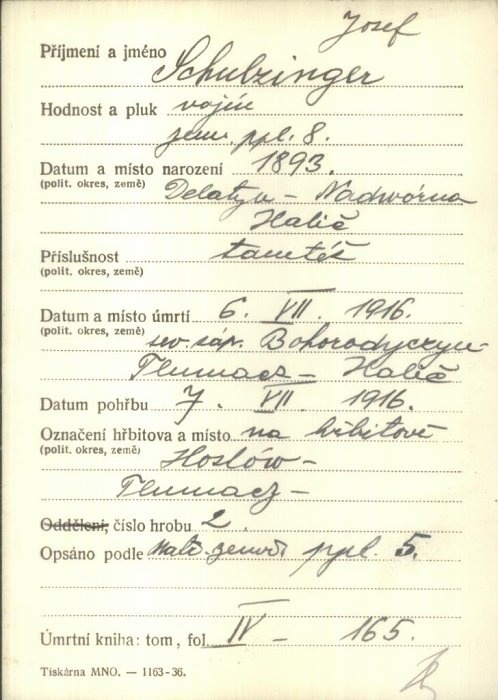 Josef
Příjmení a jméno Schulzinger
Hodnost a pluk vojín
zem. ppl. 8.
Datum a místo narození 1893.
(polit. okres, země) Delatyn – Nadwórna
Halič
Příslušnost tamtéž
(polit. okres, země)
Datum a místo úmrtí 6. VII. 1916.
(polit. okres, země) sev. záp. Bohorodyczyn –
Tlumacz – Halič
Datum pohřbu 7. VII. 1916.
Označení hřbitova a místo na hřbitově
(polit. okres, země) Hoslów –
Tlumacz –
Oddělení, číslo hrobu 2.
Opsáno podle ppl. 5.
Úmrtní kniha: tom, fol. IV – 165.
Tiskárna MNO. — 1163-36.